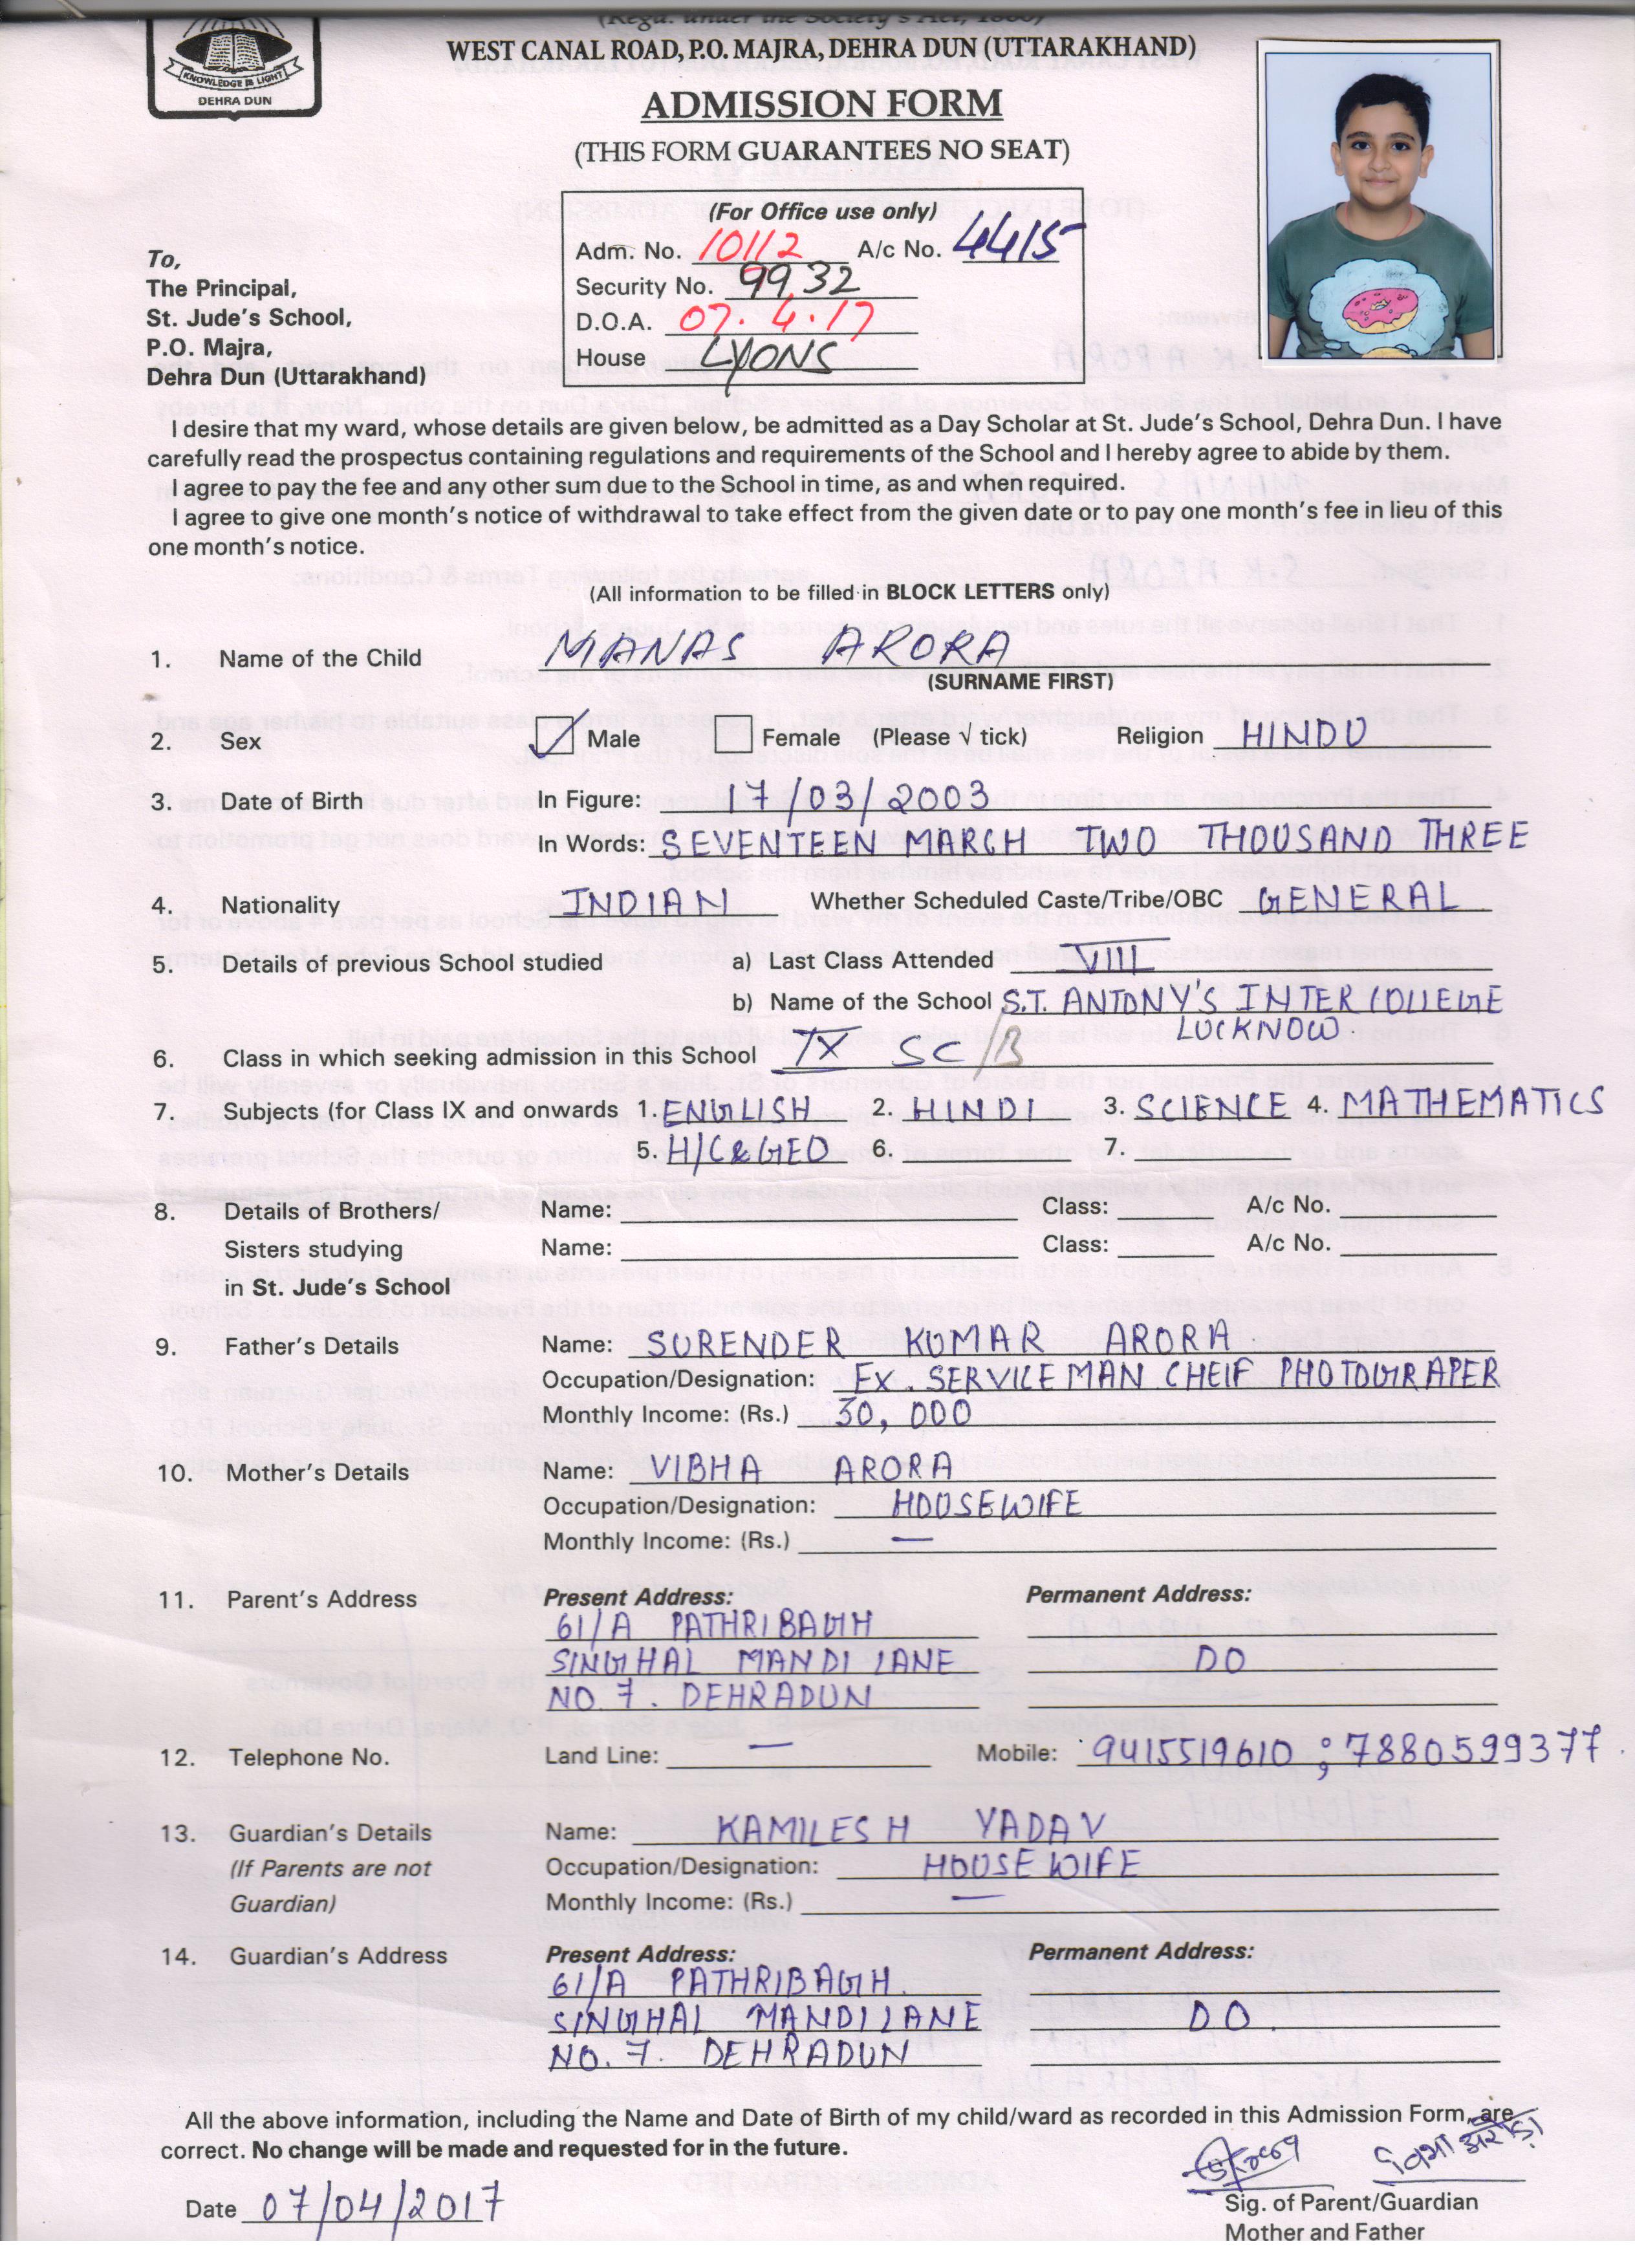 (Regd. under the Society's Act, 1860)
WEST CANAL ROAD, P.O. MAJRA, DEHRA DUN (UTTARAKHAND)
KNOWLEDGE IS LIGHT
DEHRA DUN
ADMISSION FORM
(THIS FORM GUARANTEES NO SEAT)
(For Office use only)
Adm. No. 10112 A/c No. 4415
Security No. 9932
D.O.A. 07.4.17
House LYONS
To,
The Principal,
St. Jude's School,
P.O. Majra,
Dehra Dun (Uttarakhand)
I desire that my ward, whose details are given below, be admitted as a Day Scholar at St. Jude's School, Dehra Dun. I have
carefully read the prospectus containing regulations and requirements of the School and I hereby agree to abide by them.
I agree to pay the fee and any other sum due to the School in time, as and when required.
I agree to give one month's notice of withdrawal to take effect from the given date or to pay one month's fee in lieu of this
one month's notice.
(All information to be filled in BLOCK LETTERS only)
1. Name of the Child MANAS ARORA
(SURNAME FIRST)
2. Sex Male Female (Please √ tick) Religion HINDU
3. Date of Birth In Figure: 17/03/2003
In Words: SEVENTEEN MARCH TWO THOUSAND THREE
4. Nationality INDIAN Whether Scheduled Caste/Tribe/OBC GENERAL
5. Details of previous School studied a) Last Class Attended VIII
b) Name of the School S.T. ANTONY'S INTER COLLEGE
LUCKNOW.
6. Class in which seeking admission in this School IX SC/B
7. Subjects (for Class IX and onwards 1. ENGLISH 2. HINDI 3. SCIENCE 4. MATHEMATICS
5. H/C&GEO 6. 7.
8. Details of Brothers/ Name: Class: A/c No.
Sisters studying Name: Class: A/c No.
in St. Jude's School
9. Father's Details Name: SURENDER KUMAR ARORA
Occupation/Designation: EX. SERVICEMAN CHEIF PHOTOGRAPER
Monthly Income: (Rs.) 30,000
10. Mother's Details Name: VIBHA ARORA
Occupation/Designation: HOUSEWIFE
Monthly Income: (Rs.) —
11. Parent's Address Present Address: Permanent Address:
61/A PATHRIBAGH
SINGHAL MANDI LANE DO
NO. 7. DEHRADUN
12. Telephone No. Land Line: — Mobile: 9415519610 ; 7880599377.
13. Guardian's Details Name: KAMILESH YADAV
(If Parents are not Occupation/Designation: HOUSE WIFE
Guardian) Monthly Income: (Rs.) —
14. Guardian's Address Present Address: Permanent Address:
61/A PATHRIBAGH.
SINGHAL MANDI LANE DO.
NO. 7. DEHRADUN
All the above information, including the Name and Date of Birth of my child/ward as recorded in this Admission Form, are
correct. No change will be made and requested for in the future.
Date 07/04/2017
Sig. of Parent/Guardian
Mother and Father